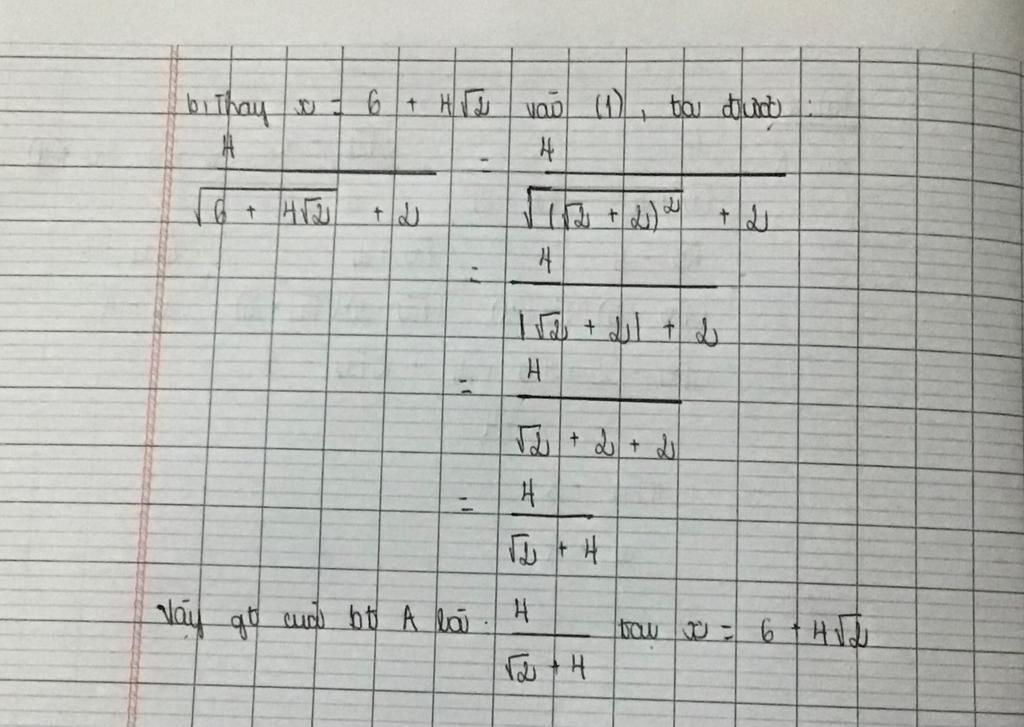 b, Thay x = 6 + 4√2 vào (1), ta được :
4/(√(6 + 4√2) + 2) = 4/(√((√2 + 2)²) + 2)
= 4/(|√2 + 2| + 2)
= 4/(√2 + 2 + 2)
= 4/(√2 + 4)
Vậy gt của bt A là : 4/(√2 + 4) tại x = 6 + 4√2